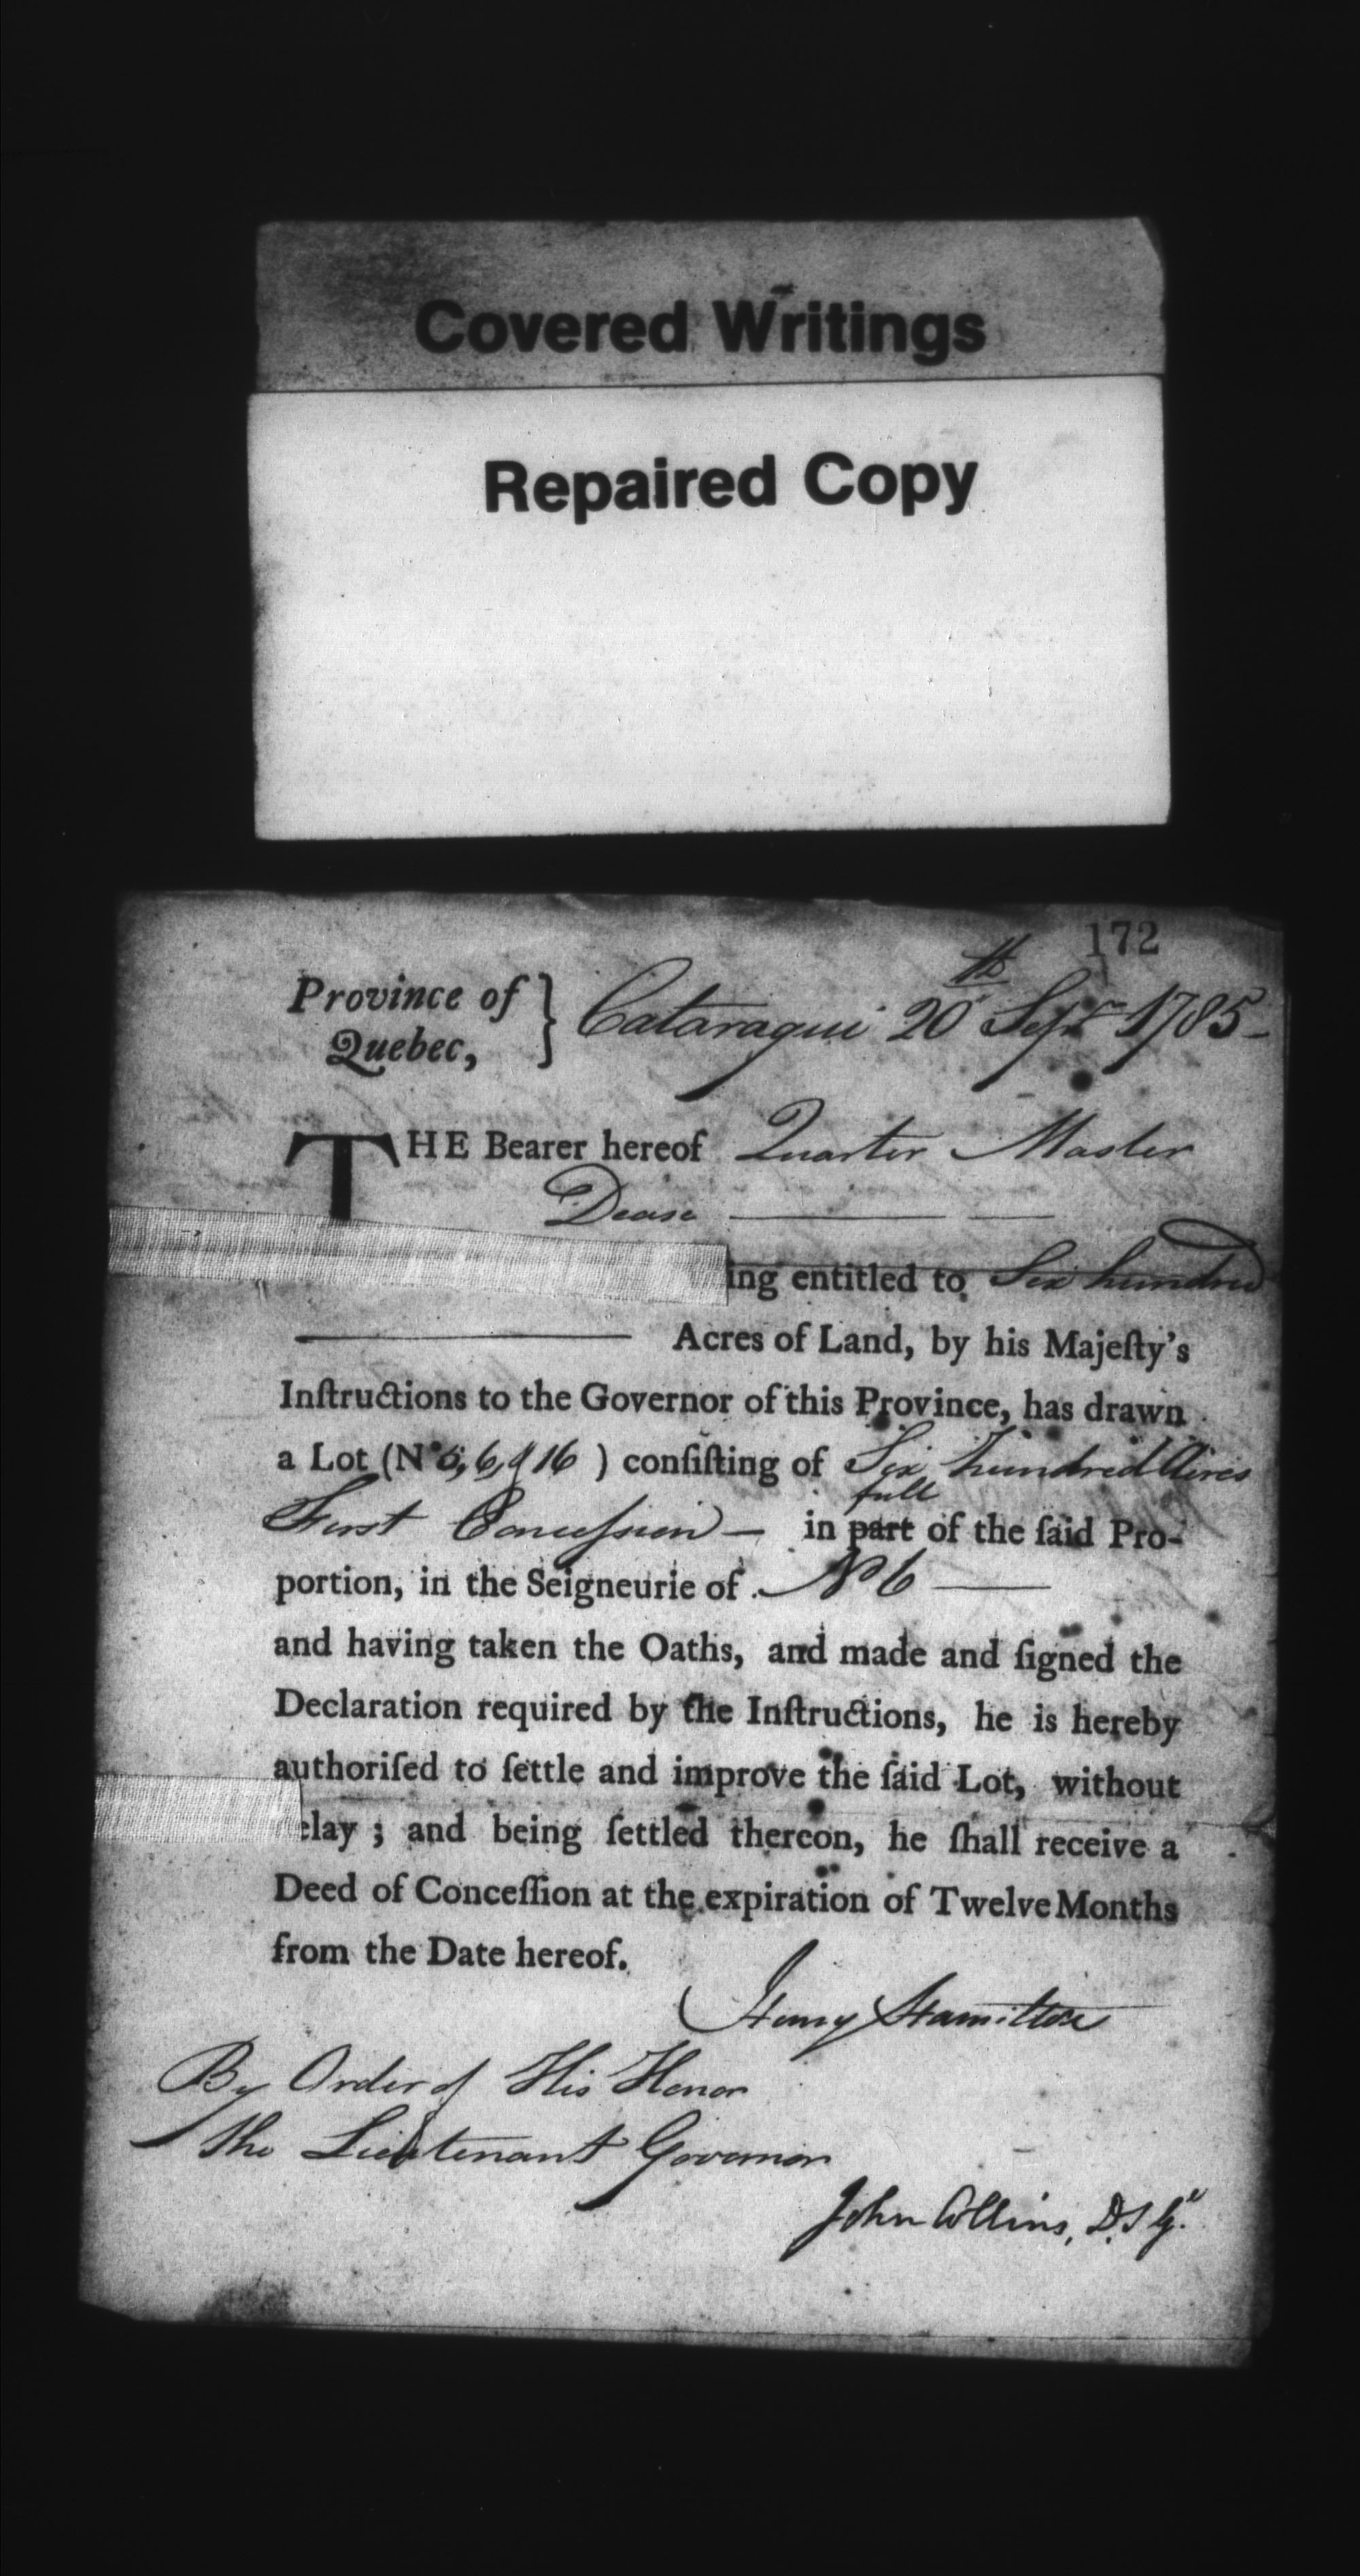 Covered Writings
Repaired Copy
172
Province of
Quebec,
} Cataraqui 20th Sepr 1785-
THE Bearer hereof Quarter Master
Dease
ing entitled to Six hundred
Acres of Land, by his Majeſty's
Inſtructions to the Governor of this Province, has drawn
a Lot (No 5, 6, & 16 ) conſiſting of Six hundred Acres
full
First Conceſsion — in part of the ſaid Pro-
portion, in the Seigneurie of No 6
and having taken the Oaths, and made and ſigned the
Declaration required by the Inſtructions, he is hereby
authoriſed to ſettle and improve the ſaid Lot, without
elay ; and being ſettled thereon, he ſhall receive a
Deed of Conceſſion at the expiration of Twelve Months
from the Date hereof.
Henry Hamilton
By Order of His Honor
the Lieutenant Governor
John Collins, D.S.G.